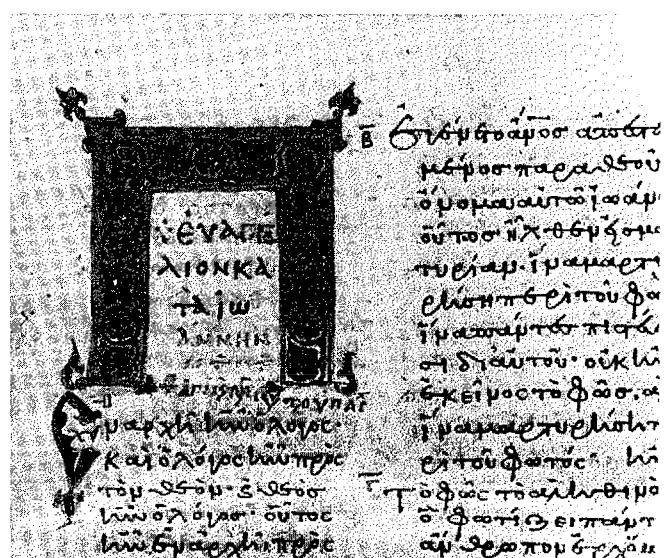 ΕΥΑΓΓΕ
ΛΙΟΝ ΚΑ
ΤΑ ΙΩ
ΑΝΝΗΝ
Ἐν ἀρχῆ ἦν ὁ λόγος·
καὶ ὁ λόγος ἦν πρὸς
τὸν θεὸν· καὶ θεὸς
ἦν ὁ λόγος· οὗτος
ἦν ἐν ἀρχῆ πρὸς
Β Ἐγένετο ἄνος ἀπεστα
μένος παρὰ θεοῦ
ὄνομα αὐτῶ ἰωάν
οὗτος ἦλθεν εἰς μα
τυρίαν· ἵνα μαρτυ
ρήση περὶ τοῦ φω
ἵνα πάντες πιστεύ
σι δι αὐτοῦ· οὐκ ἦν
ἐκεῖνος τὸ φῶς. ἀ
ἵνα μαρτυρήση
ρὶ τοῦ φωτός· ἦν
Γ τὸ φῶς τὸ ἀληθινὸ
ὃ φωτίζει πάντ
ἄνθρωπον ἐρχόμ